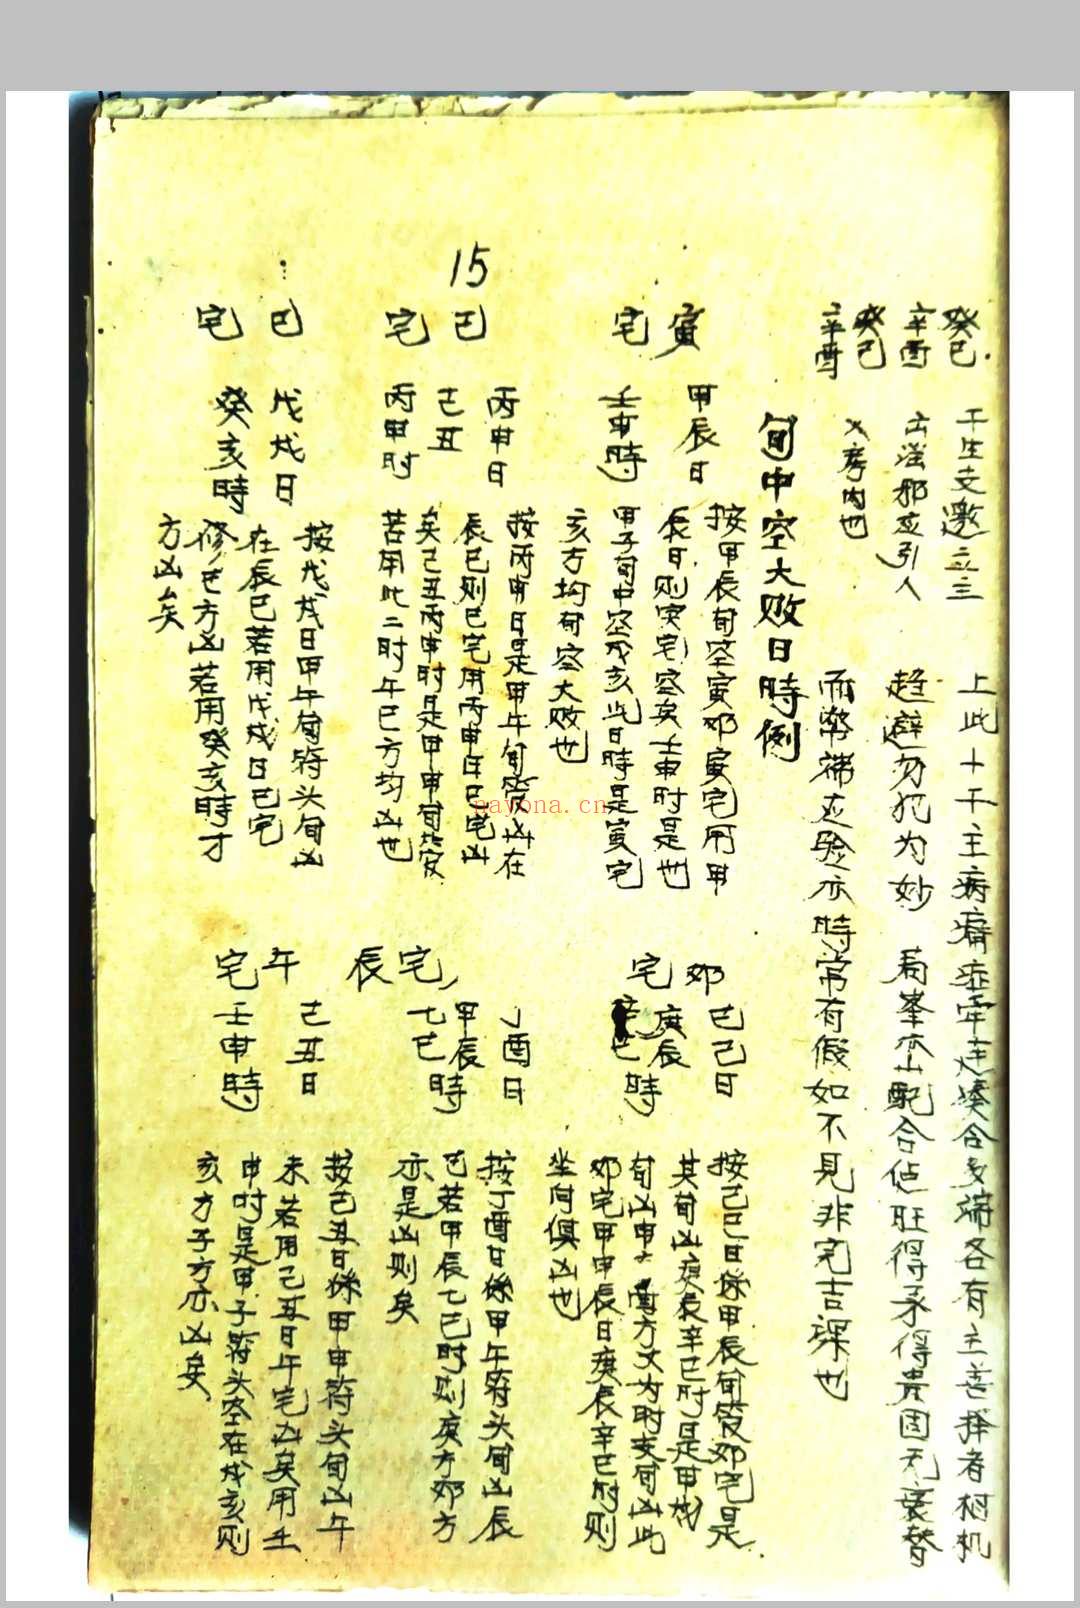 癸巳 干生支邀立主
辛酉 出淫邪應引人
癸巳
辛酉 入房内也
上此十干主病痛症牽連湊合多端各有主善擇者相机
趨避勿犯为妙 看峯亦山配合佔旺得承得貴固无衰替
而弊端应验亦時常有假如不見非完吉課也
旬中空大败日時例
寅宅
甲辰日
壬申時
按甲辰旬空寅卯寅宅用甲
辰日则寅宅空矣壬申时是
甲子旬中空戌亥此日時是寅宅也
亥方均旬空大败也
卯宅
己巳日
庚辰
辛巳時
按己巳日係甲辰旬管卯宅是
其旬凶庚辰辛巳时是甲戌
旬凶申方又为时亥旬凶此
卯宅甲申辰日庚辰辛巳时则
坐向俱凶也
15
巳宅
丙申日
己丑
丙申时
按丙申日是甲午旬管凶在
辰巳则巳宅用丙申年巳宅凶
矣己丑丙申时是甲申旬管
若用此二时午巳方均凶也
辰宅
丁酉日
甲辰
乙巳時
按丁酉日係甲午符头旬凶辰
巳若甲辰乙巳时则寅方卯方
亦是凶则矣
巳宅
戊戌日
癸亥時
按戊戌日甲午旬符头旬凶
在辰巳若用戊戌日巳宅
修巳方凶若用癸亥時才
方凶矣
午宅
己丑日
壬申時
按己丑日係甲申符头旬凶午
未若用己丑日午宅凶矣用壬
申时是甲子符头空在戌亥则
亥方子方亦凶矣
nayona.cn